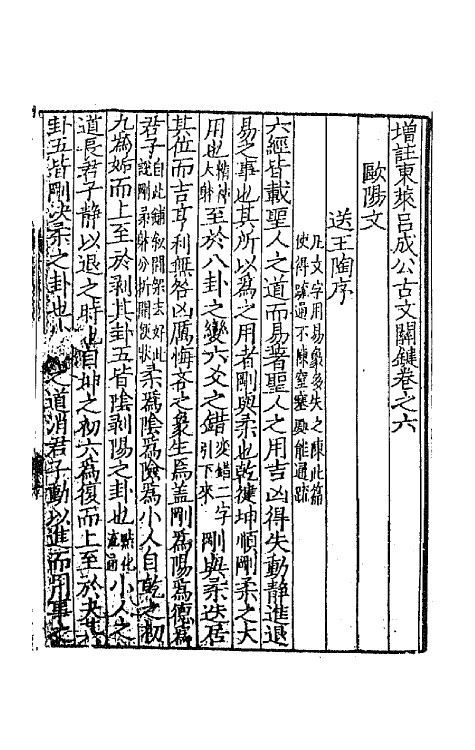 增註東萊呂成公古文關鍵卷之六
歐陽文
送王陶序
凡文字用易象多失之陳此篇
使得疏通不陳窒塞廼能通疏
六經皆載聖人之道而易著聖人之用吉凶得失動静進退
易之事也其所以為之用者剛與柔也乾健坤順剛柔之大
用也 至於八卦之變六爻之錯 變錯二字引下來 剛與柔迭居
其位而吉亨利無咎凶厲悔吝之象生焉蓋剛為陽為德為
君子 自此鋪敘間架去好此說剛柔 分析開 狀 柔為陰為險為小人自乾之初
九為姤而上至於剥其卦五皆陰剥陽之卦也 點化 小人之
道長君子静以退之時也自坤之初六為復而上至於夬其
卦五皆剛決柔之卦也小 之道消君子動以進而用事之